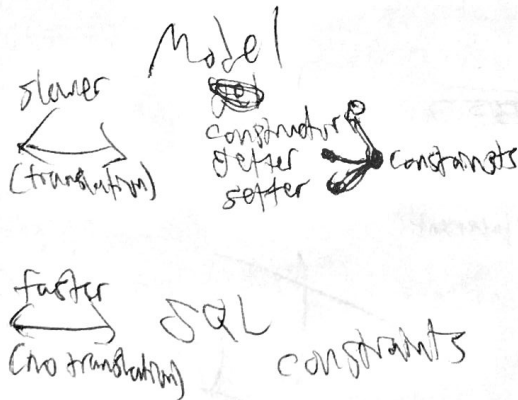 Model
slower
(translation)
constructor
getter
setter
constrainsts
faster
(no translation)
SQL
constraints